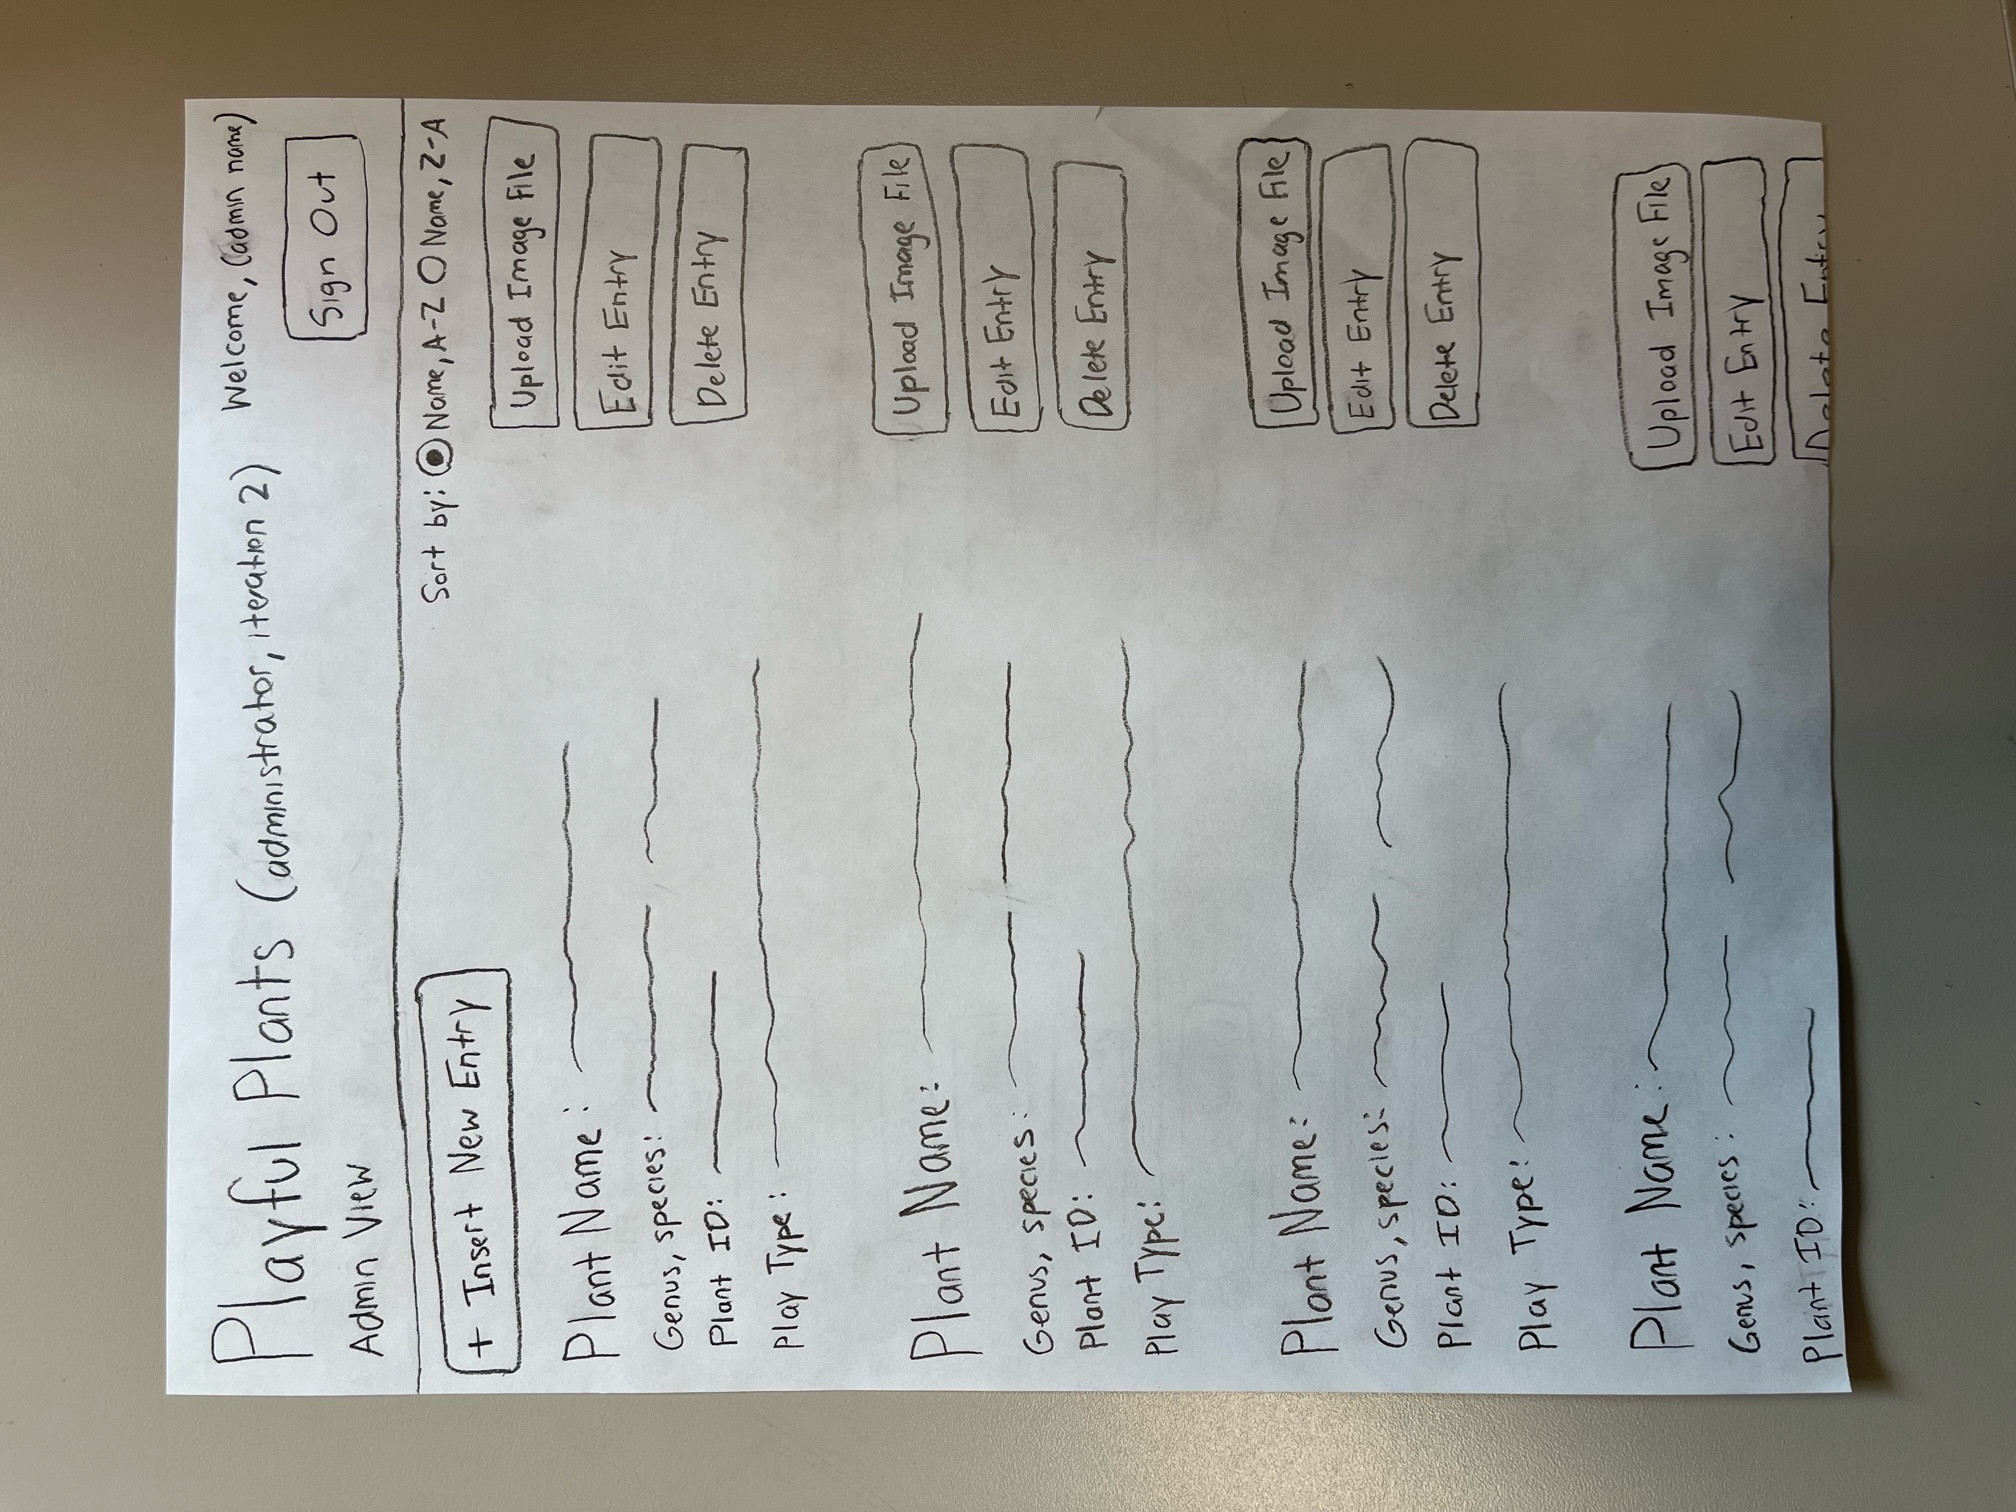 Playful Plants (administrator, iteration 2)
Welcome, (admin name)
Sign Out
Admin View
+ Insert New Entry
Sort by: Name, A-Z Name, Z-A
Plant Name:
Genus, species:
Plant ID:
Play Type:
Upload Image File
Edit Entry
Delete Entry
Plant Name:
Genus, species:
Plant ID:
Play Type:
Upload Image File
Edit Entry
Delete Entry
Plant Name:
Genus, species:
Plant ID:
Play Type:
Upload Image File
Edit Entry
Delete Entry
Plant Name:
Genus, species:
Plant ID:
Upload Image File
Edit Entry
Delete Entry